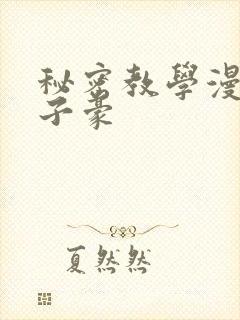 秘密教學漫
子豪
夏然然